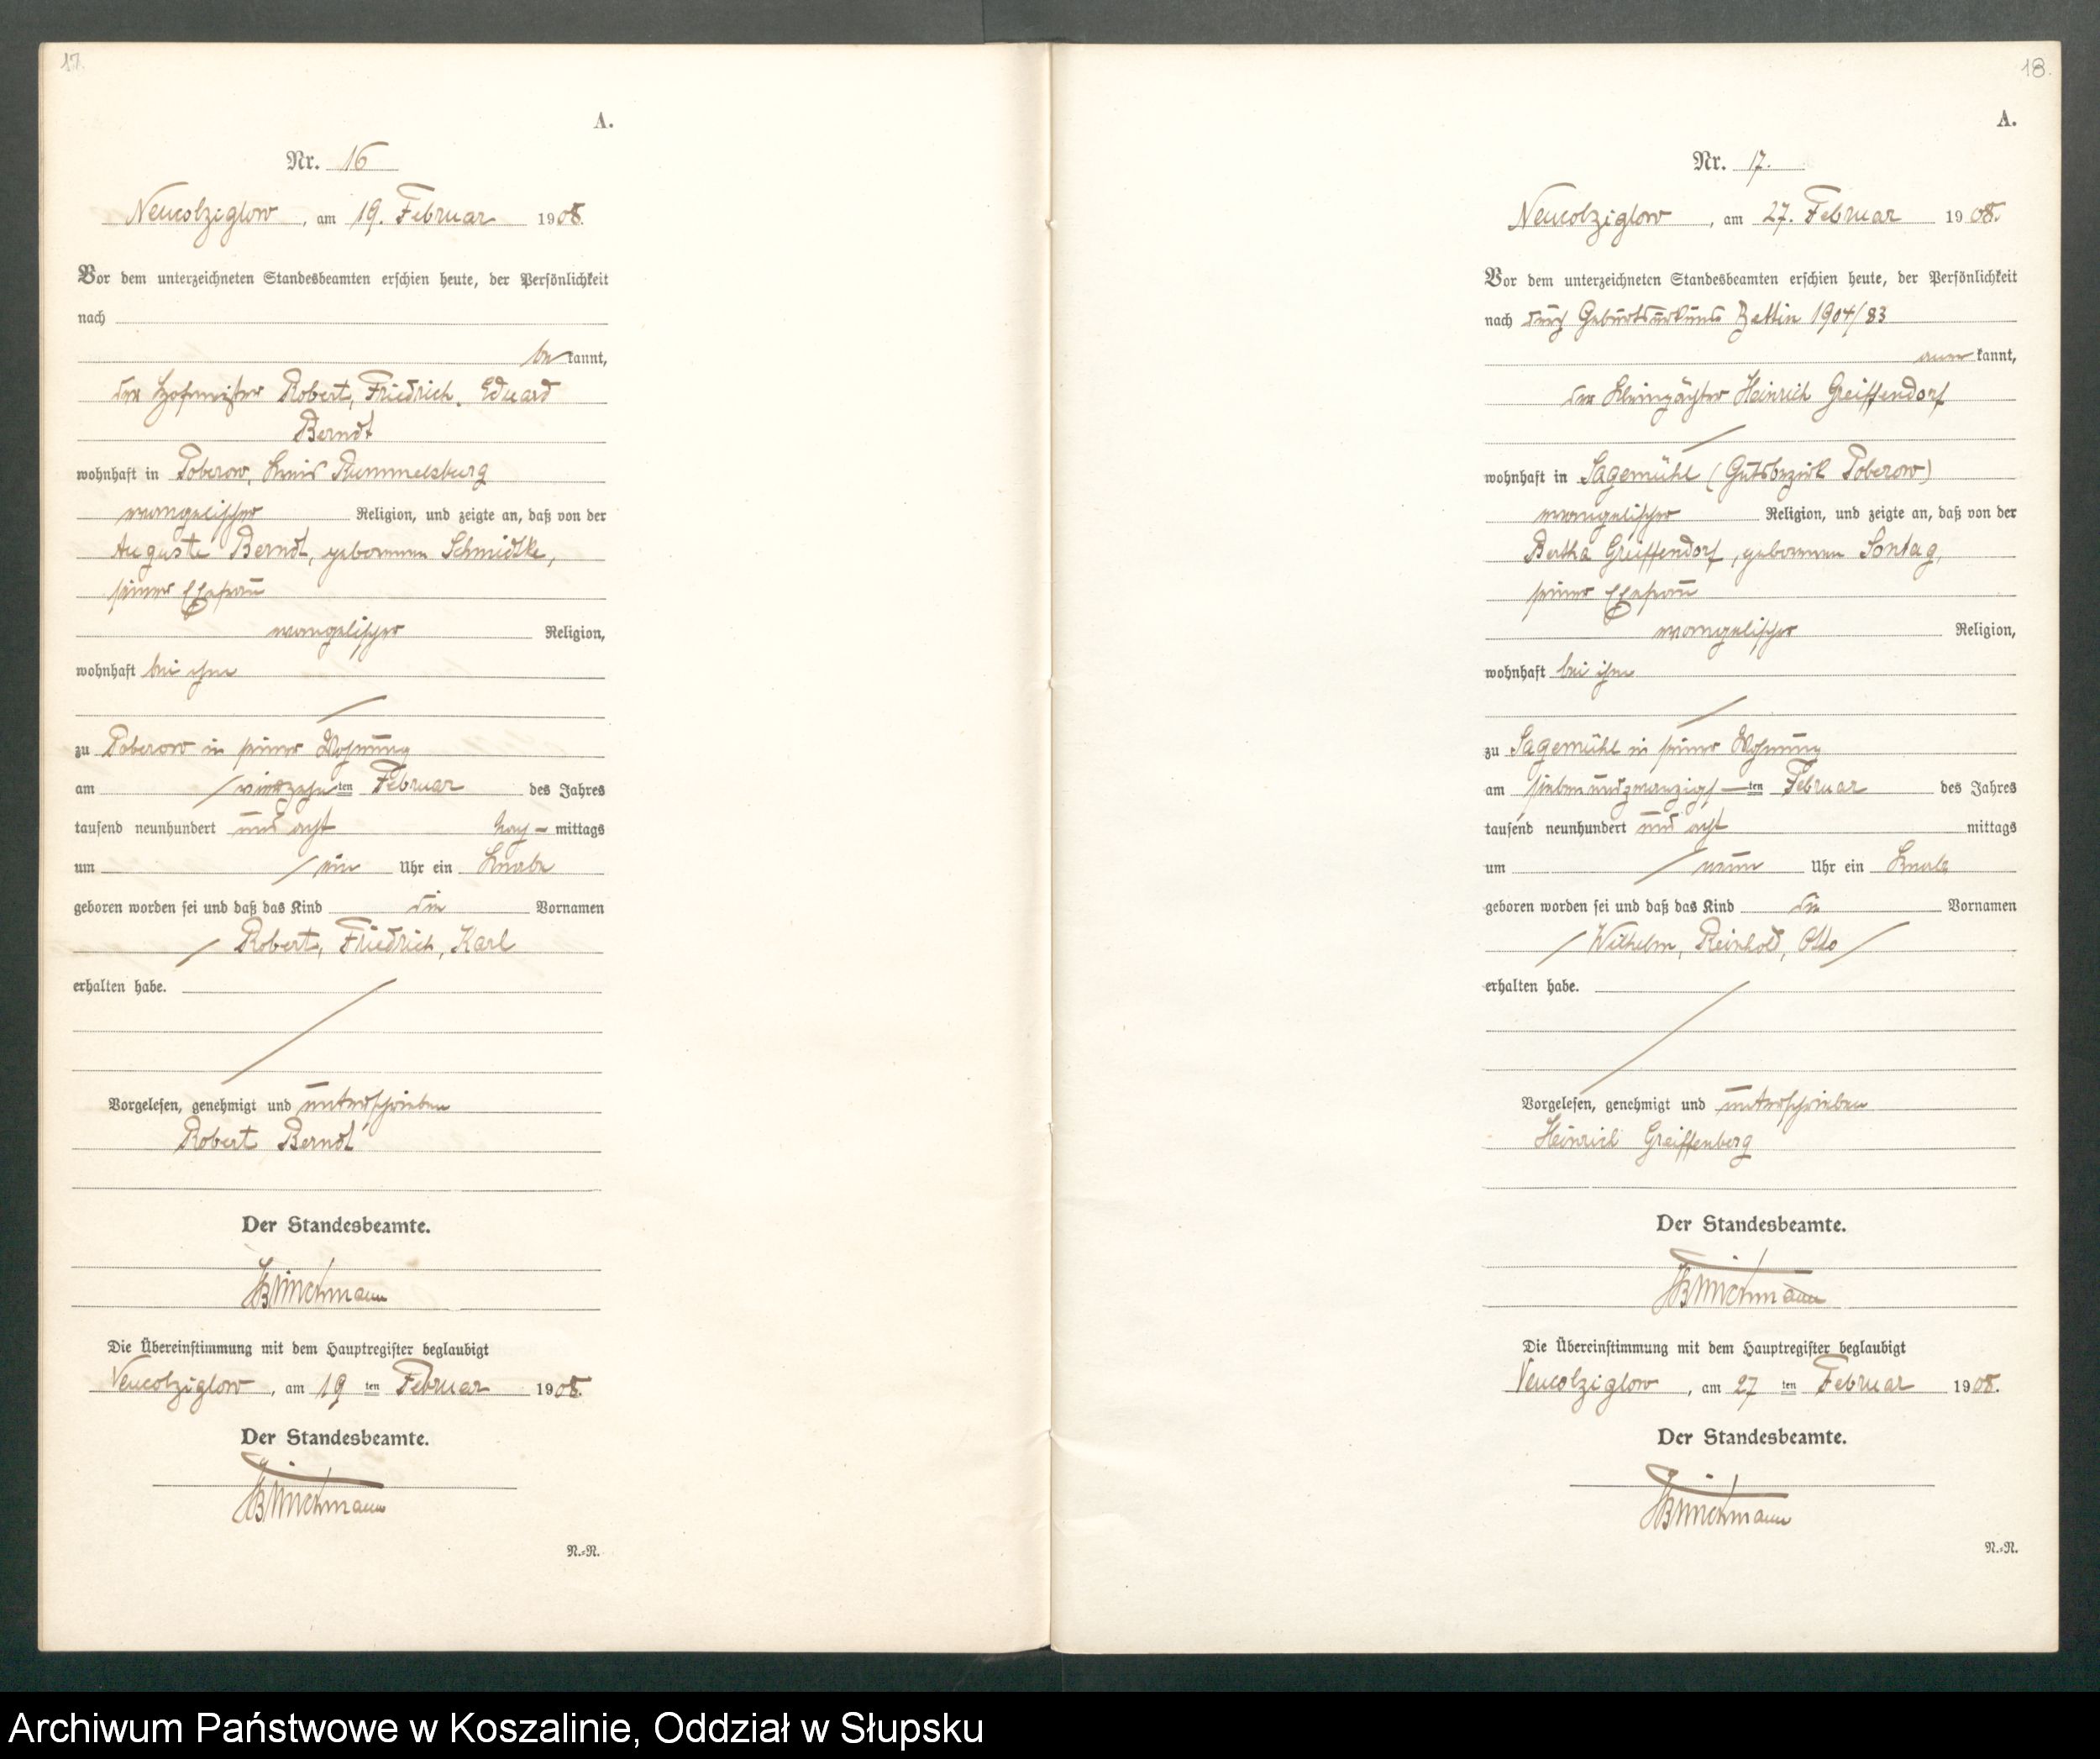 17.
A.
Nr. 16
Neukolziglow, am 19. Februar 1908.
Vor dem unterzeichneten Standesbeamten erschien heute, der Persönlichkeit
nach
bekannt,
der Hofmeister Robert, Friedrich, Eduard
Berndt
wohnhaft in Poberow, Kreis Rummelsburg
evangelischer Religion, und zeigte an, daß von der
Auguste Berndt, geborenen Schmidtke,
seiner Ehefrau
evangelischer Religion,
wohnhaft bei ihm
zu Poberow in seiner Wohnung
am vierzehnten Februar des Jahres
tausend neunhundert und acht Nach-mittags
um ein Uhr ein Knabe
geboren worden sei und daß das Kind die Vornamen
Robert, Friedrich, Karl
erhalten habe.
Vorgelesen, genehmigt und unterschrieben
Robert Berndt
Der Standesbeamte.
Die Übereinstimmung mit dem Hauptregister beglaubigt
Neukolziglow, am 19 ten Februar 1908.
Der Standesbeamte.
N.=N.
18.
A.
Nr. 17.
Neukolziglow, am 27. Februar 1908.
Vor dem unterzeichneten Standesbeamten erschien heute, der Persönlichkeit
nach durch Geburtsurkunde Zettin 1904/83
anerkannt,
der Kleinpächter Heinrich Greiffendorf
wohnhaft in Sagemühl (Gutsbezirk Poberow)
evangelischer Religion, und zeigte an, daß von der
Bertha Greiffendorf, geborenen Sontag,
seiner Ehefrau
evangelischer Religion,
wohnhaft bei ihm
zu Sagemühl in seiner Wohnung
am siebenundzwanzigs—ten Februar des Jahres
tausend neunhundert und acht mittags
um neun Uhr ein Knabe
geboren worden sei und daß das Kind die Vornamen
Wilhelm, Reinhold, Otto
erhalten habe.
Vorgelesen, genehmigt und unterschrieben
Heinrich Greiffenberg
Der Standesbeamte.
Die Übereinstimmung mit dem Hauptregister beglaubigt
Neukolziglow, am 27 ten Februar 1908.
Der Standesbeamte.
N.=N.
Archiwum Państwowe w Koszalinie, Oddział w Słupsku